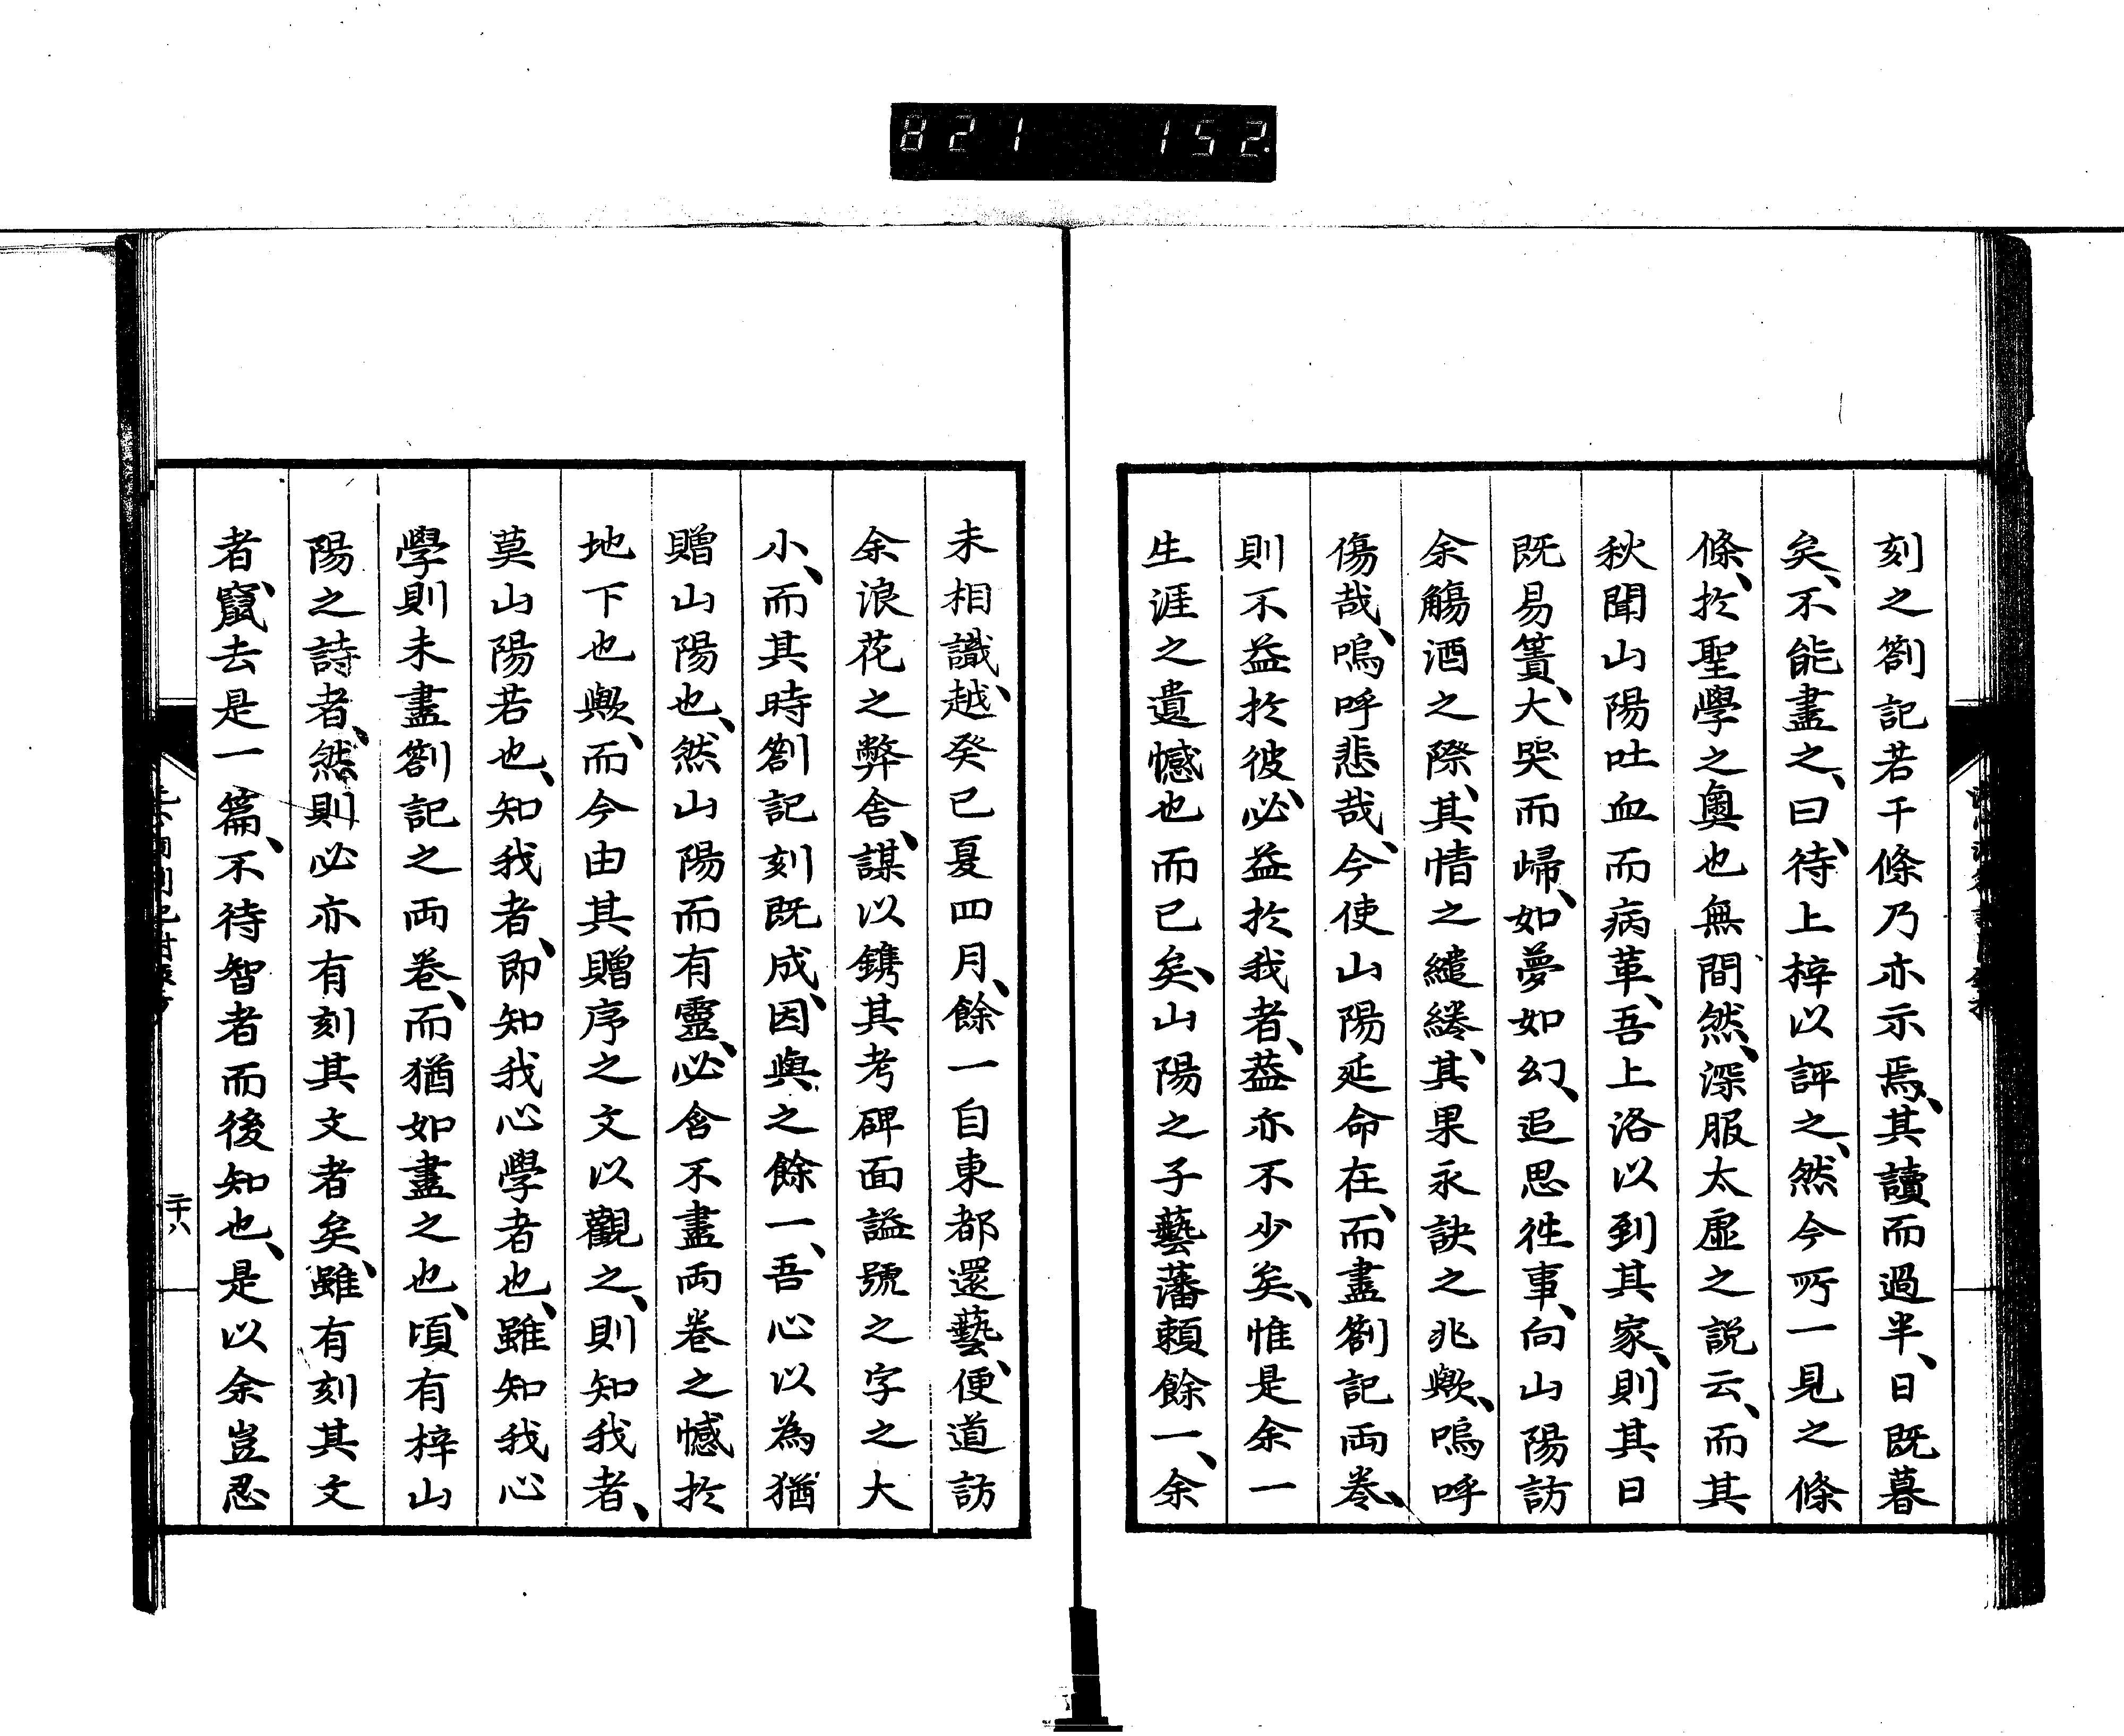 821 152.
刻之劄記若干條乃亦示焉、其讀而過半、日既暮
矣、不能盡之、曰、待上梓以評之、然今所一見之條
條、於聖學之奧也無間然、深服太虛之説云、而其
秋聞山陽吐血而病革、吾上洛以到其家、則其日
既易簀、大哭而歸、如夢如幻、追思徃事、向山陽訪
余觴酒之際、其情之繾綣、其果永訣之兆歟、嗚呼
傷哉、嗚呼悲哉、今使山陽延命在、而盡劄記両卷、
則不益於彼、必益於我者、葢亦不少矣、惟是余一
生涯之遺憾也而已矣、山陽之子藝藩頼餘一、余
未相識、越癸巳夏四月、餘一自東都還藝、便道訪
余浪花之弊舎、謀以鐫其考碑面謚號之字之大
小、而其時劄記刻既成、因與之餘一、吾心以為猶
贈山陽也、然山陽而有靈、必含不盡両卷之憾於
地下也歟、而今由其贈序之文以觀之、則知我者、
莫山陽若也、知我者、即知我心學者也、雖知我心
學則未盡劄記之両卷、而猶如盡之也、頃有梓山
陽之詩者、然則必亦有刻其文者矣、雖有刻其文
者、竄去是一篇、不待智者而後知也、是以余豈忍
二十八